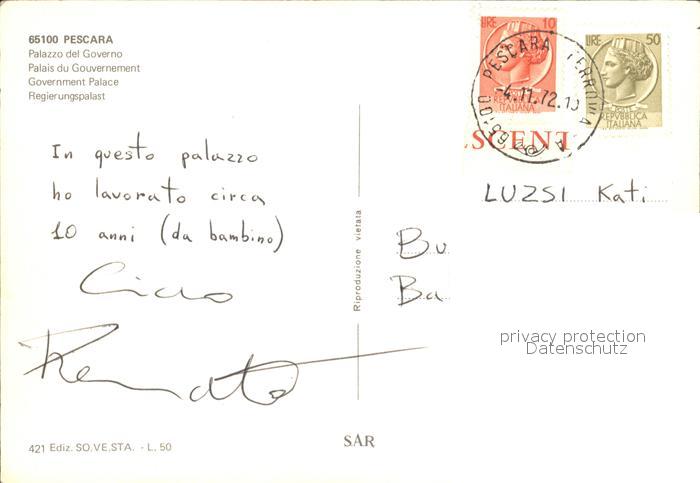 65100 PESCARA
Palazzo del Governo
Palais du Gouvernement
Government Palace
Regierungspalast
In questo palazzo
ho lavorato circa
10 anni (da bambino)
Ciao
Renato
421 Ediz. SO.VE.STA. - L. 50
Riproduzione vietata
SAR
LIRE 10
REPVBBLICA
ITALIANA
LIRE 50
POSTE
REPVBBLICA
ITALIANA
65100 PESCARA FERROVIA
-4.11.72.19
SCENT
LUZSI Kati
Bu
Ba
privacy protection
Datenschutz